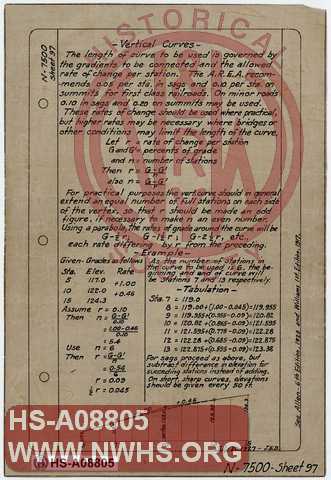 N-7500
Sheet 97
-Vertical Curves-
The length of curve to be used is governed by
the gradients to be connected and the allowed
rate of change per station. The A.R.E.A. recom-
mends 0.05 per sta. in sags and 0.10 per sta. on
summits for first class railroads. On minor roads
0.10 in sags and 0.20 on summits may be used.
These rates of change should be used where practical,
but higher rates may be necessary where bridges or
other conditions may limit the length of the curve.
Let r = rate of change per station
G and G' = percents of grade
and n = number of stations
Then r = G-G'/n
also n = G-G'/r
For practical purposes the vert. curve should in general
extend an equal number of full stations on each side
of the vertex, so that n should be made an odd
figure, if necessary to make n an even number.
Using a parabola, the rates of grade around the curve will be
G-½r, G-1½r, G-2½r, etc.
each rate differing by r from the preceding.
-Example-
Given-Grades as follows
Sta. Elev. Rate
5 117.0
+1.00
10 122.0
+0.46
15 124.3
Assume r = 0.10
Then n = G-G'/r
= 1.00-0.46/0.10
= 5.4
Use n = 6
Then r = G-G'/n
= 0.54/6
r = 0.09
½r = 0.045
As the number of stations in
the curve to be used is 6, the be-
ginning and end of curve will be
Stations 7 and 13 respectively.
-Tabulation-
Sta. 7 = 119.0
8 = 119.00+(1.00-0.045)=119.955
9 = 119.955+(0.955-0.09)=120.82
10 = 120.82+(0.865-0.09)=121.595
11 = 121.595+(0.775-0.09)=122.28
12 = 122.28+(0.685-0.09)=122.875
13 = 122.875+(0.595-0.09)=123.38
For sags proceed as above, but
subtract difference in elevation for
succeeding stations instead of adding.
On short, sharp curves, elevations
should be given every 50 ft.
+0.46
HS-A08805
WWW.NWHS.ORG
HS-A08805
N-7500-Sheet 97
HISTORICAL